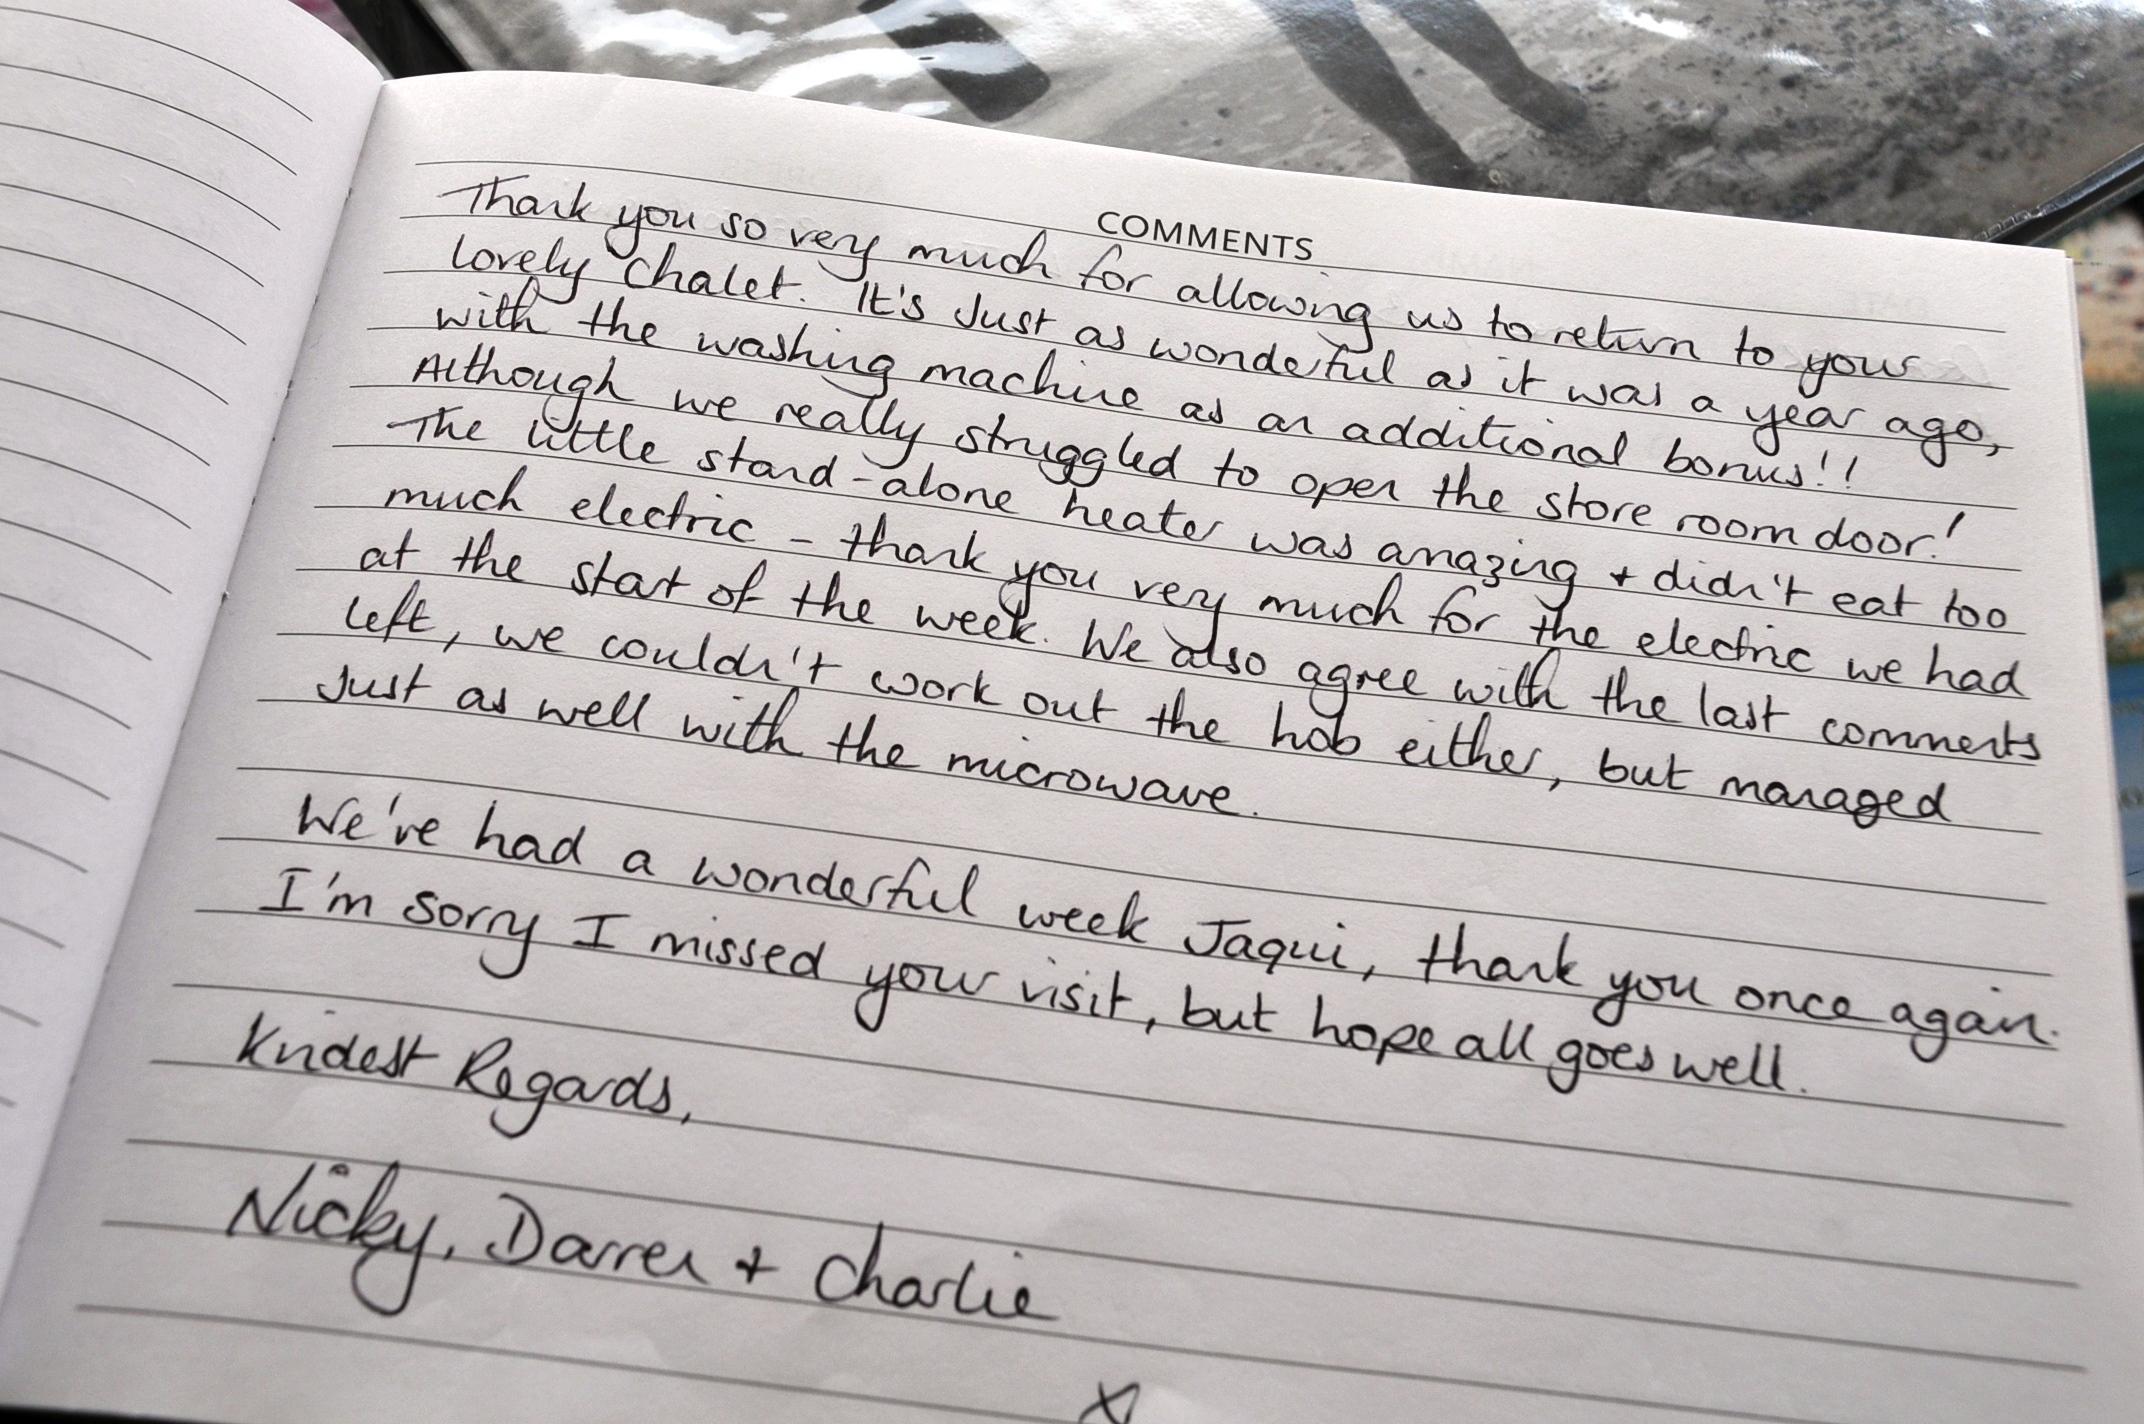 COMMENTS
Thank you so very much for allowing us to return to your
lovely chalet. It's Just as wonderful as it was a year ago,
with the washing machine as an additional bonus!!
Although we really struggled to open the store room door!
The little stand-alone heater was amazing + didn't eat too
much electric - thank you very much for the electric we had
at the start of the week. We also agree with the last comments
left, we couldn't work out the hob either, but managed
Just as well with the microwave.
We've had a wonderful week Jaqui, thank you once again.
I'm sorry I missed your visit, but hope all goes well.
Kindest Regards,
Nicky, Darren + Charlie
X